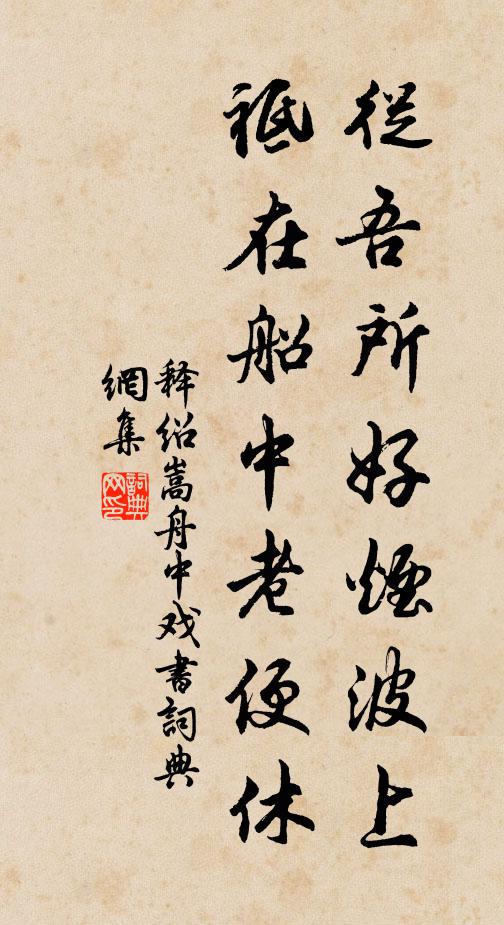 從吾所好煙波上
祗在船中老便休
释绍嵩舟中戏書詞典
網集
詞典
网印